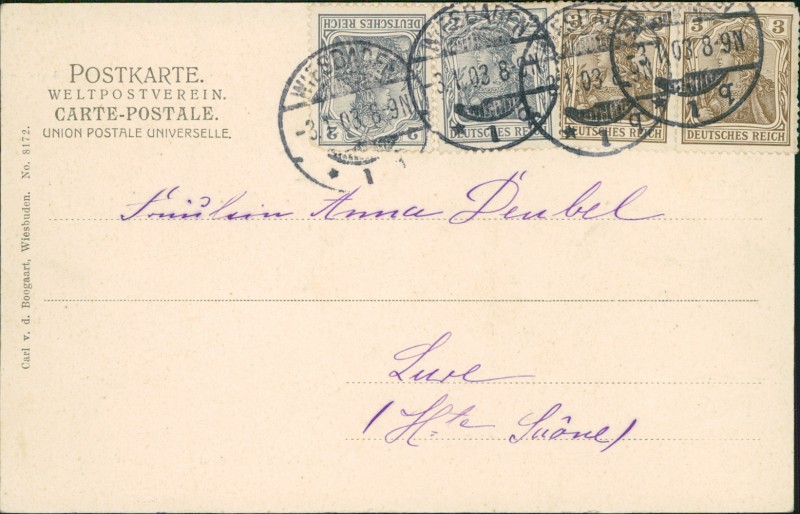 POSTKARTE.
WELTPOSTVEREIN.
CARTE-POSTALE.
UNION POSTALE UNIVERSELLE.
DEUTSCHES REICH
2
DEUTSCHES REICH
2
DEUTSCHES REICH
3
DEUTSCHES REICH
3
WIESBADEN
* 1
WIESBADEN
3.1.03 8-9N
* 1 q
3.1.03 8-9N
* 1 q
3.1.03 8-9N
* 1 q
Fräulein Anna Deubel
Lure
(Hte Saône)
Carl v. d. Boogaart, Wiesbaden. No. 8172.